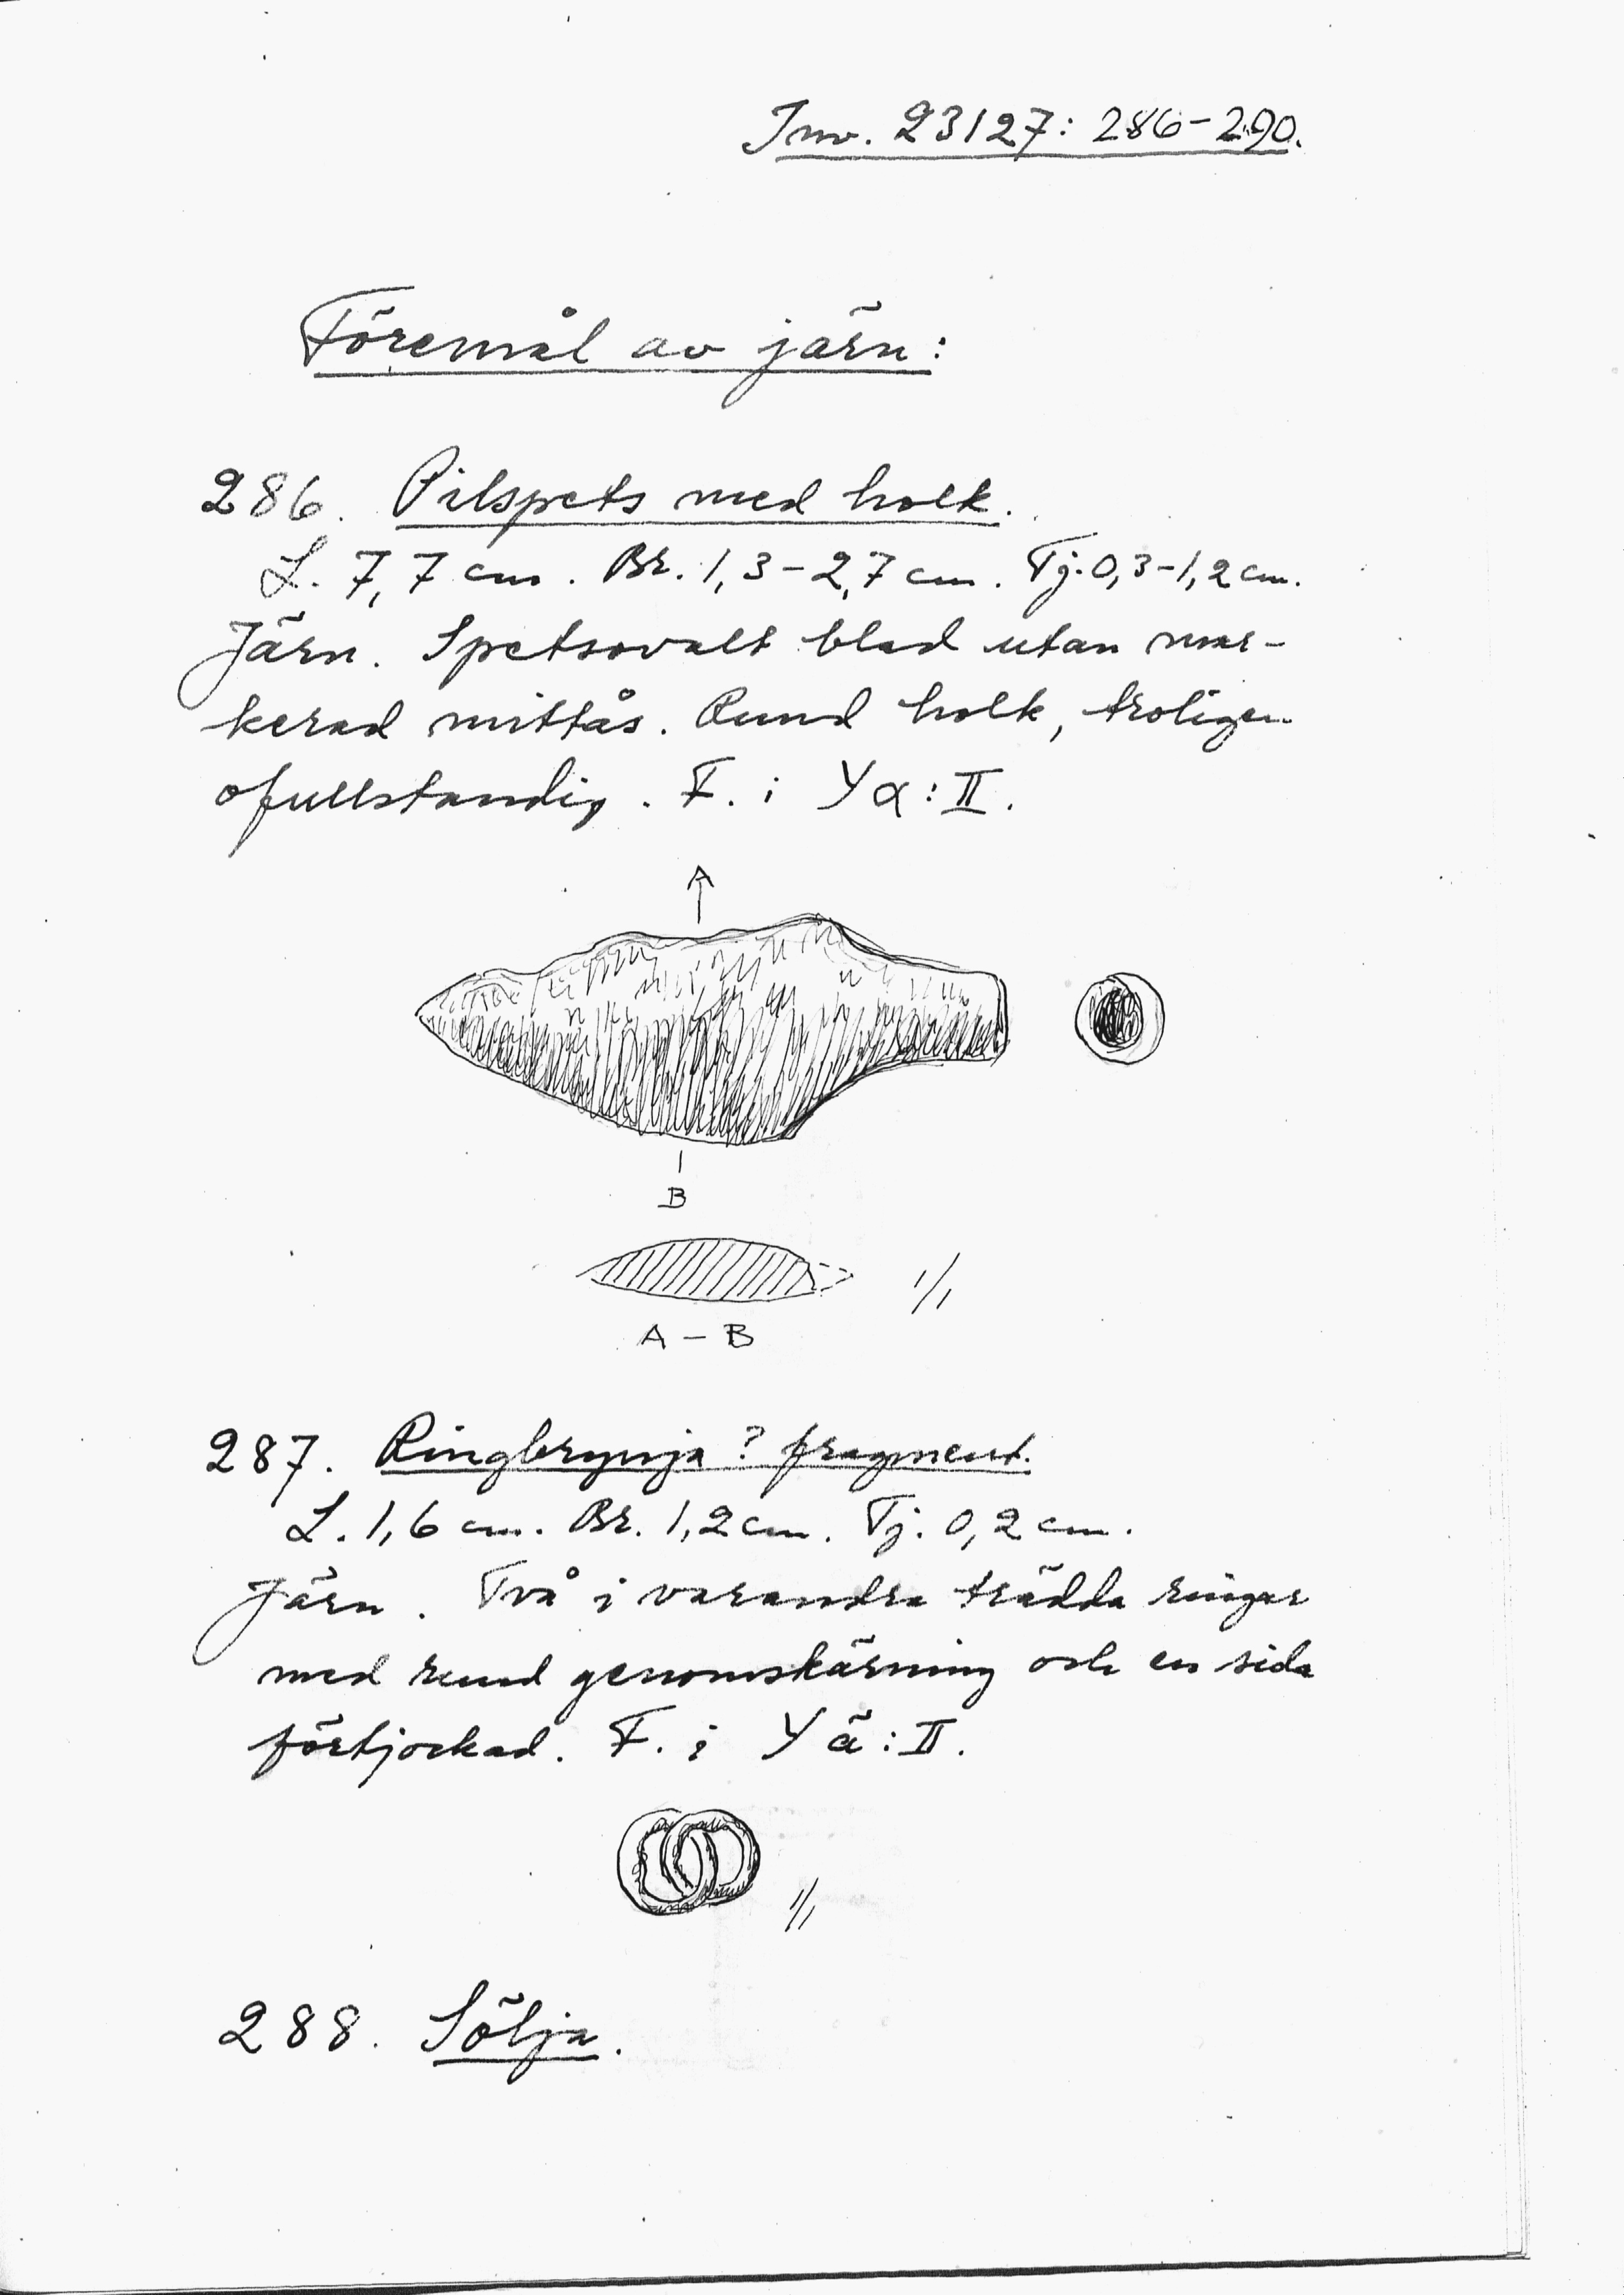 Inv. 23127: 286-290.
Föremål av järn:
286. Pilspets med holk.
L. 7,7 cm. Br. 1,3-2,7 cm. Tj. 0,3-1,2 cm.
Järn. Spetsovalt blad utan mar-
kerad mittås. Rund holk, troligen
ofullständig. F. i Yα:II.
A
B
1/1
A - B
287. Ringbrynja? fragment.
L. 1,6 cm. Br. 1,2 cm. Tj. 0,2 cm.
Järn. Två i varandra trädda ringar
med rund genomskärning och en sida
förtjockad. F. i Y ä:II.
1/1
288. Sölja.